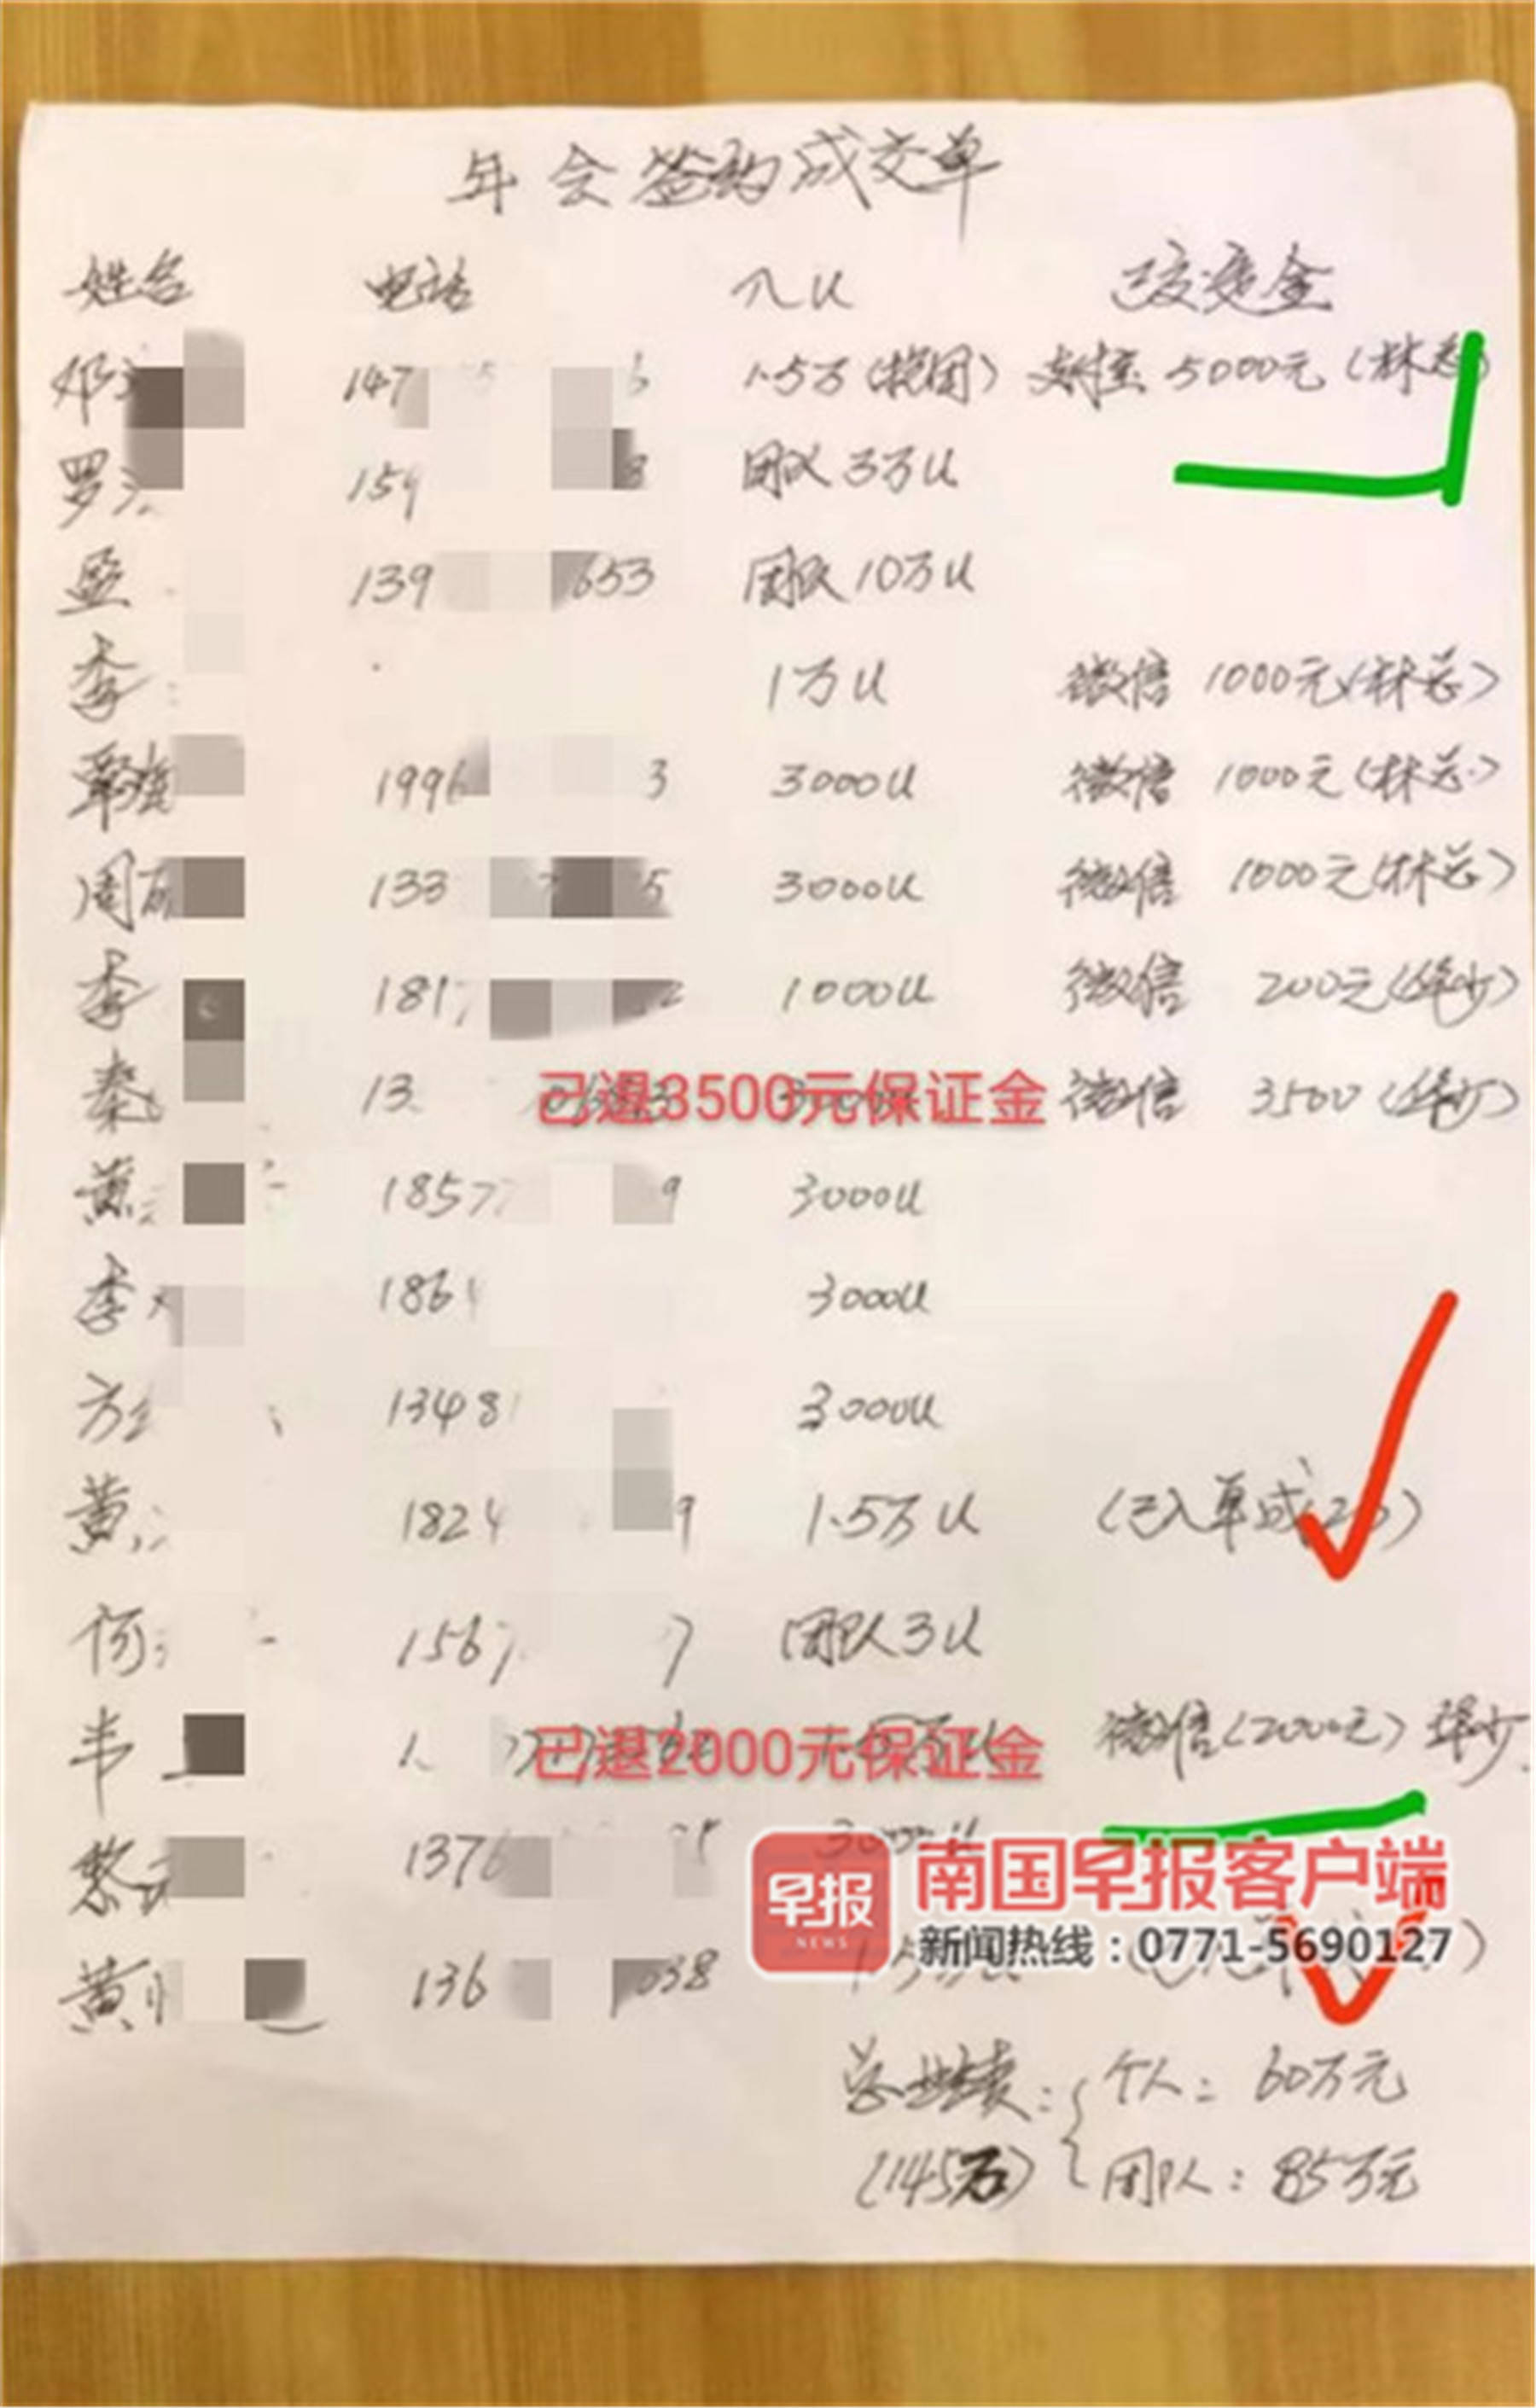 年会签约成交单
姓名 电话 入U 已交定金
邓 147 1.5万(抱团) 支付宝 5000元(林总)
罗 159 8 团队3万U
蓝 139 653 团队10万U
李 1万U 微信 1000元(林总)
覃 1996 3 3000U 微信 1000元(林总)
周丽 133 5 3000U 微信 1000元(林总)
李 181 2 1000U 微信 200元(华少)
秦 13 已退3500元保证金 微信 3500(华少)
黄 1857 9 3000U
李 186 3000U
方 1348 3000U
黄 1824 9 1.5万U (已入单成
何 156 7 团队3U
韦 已退2000元保证金 微信(2000元)华少
黎 1376 3000U
早报
NEWS
南国早报客户端
新闻热线：0771-5690127
黄 136 038
总业绩：个人：60万元
(145万) 团队：85万元